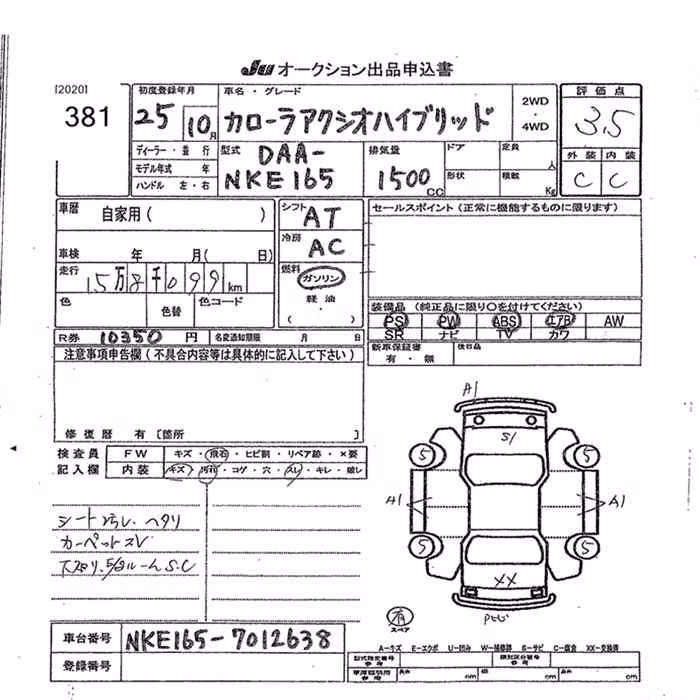 JU オークション出品申込書
[2020]
381
初度登録年月
25 10月
車名・グレード
カローラアクシオハイブリッド
2WD
・
4WD
評価点
3.5
外装 内装
C C
ディーラー・並行
モデル年式 年
ハンドル 左・右
型式
DAA-
NKE165
排気量
1500cc
ドア
形状
定員
人
積数
Kg
車歴
自家用( )
車検 年 月( 日)
走行
15万8千099km
色
色替
色コード
シフト
AT
冷房
AC
燃料
ガソリン
軽油・
( )
セールスポイント(正常に機能するものに限ります)
装備品(純正品に限り○を付けてください)
PS PW ABS エアB AW
SR ナビ TV カワ
新車保証書
有・無
後日品
R券 10350円
名変通知期限 月 日
注意事項申告欄(不具合内容等は具体的に記入して下さい)
修復歴 有 [箇所 ]
検査員
記入欄
FW
キズ・飛石・ヒビ割・リペア跡・×要
内装
キズ・汚れ・コゲ・穴・スレ・キレ・破レ
シート汚レ、ヘタリ
カーペットスレ
A1
S1
5 5
A1 A1
5 5
XX
有
スペア
A-キズ E-エクボ U-凹み W-補修跡 S-サビ C-腐食 XX-交換済
車台番号
NKE165-7012638
登録番号
型式指定番号
参考
類別区分番号
参考
長さ
cm
幅
cm
高さ
cm